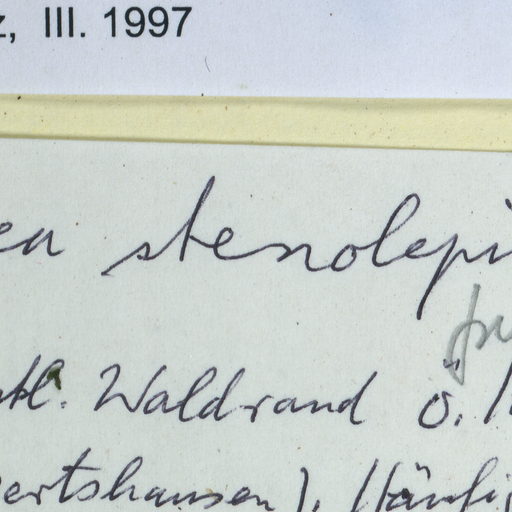 z, III. 1997
ea stenolepi
stl. Waldrand ö.
ertshausen). Häufi